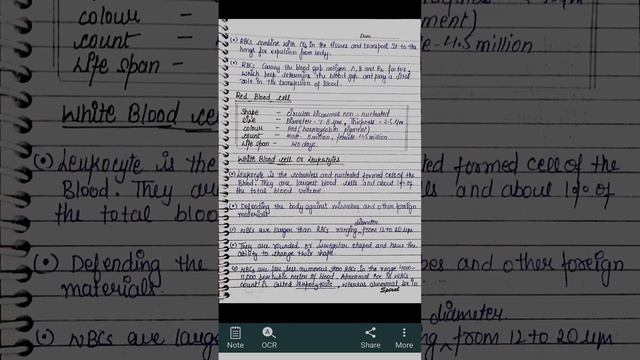 colour -
count -
life span -
White Blood ce
(•) Leukocyte is the
Blood. They are
the total bloo
(•) Defending the
materials.
(•) WBCs are large
Date
(•) RBCs combine with CO2 in the tissues and transport it to the
lungs for expulsion from body.
(•) RBCs carry the blood grp antigen A, B and Rh factor,
which help determine the blood grp and play a
role in the transfusion of blood.
Red Blood cell
Shape - circular biconcave non-nucleated
Size - Diameter - 7.8 μm, Thickness - 2.5 μm
colour - Red (haemoglobin pigment)
count - male - 5 million, female - 4.5 million
life span - 120 days.
White Blood cell or leukocytes
(•) Leukocyte is the colourless and nucleated formed cell of the
Blood. They are largest blood cells and about 1% of
the total blood volume.
(•) Defending the body against microbes and other foreign
materials.
diameter
(•) WBCs are larger than RBCs ranging from 12 to 20 μm
(•) They are rounded or irregular shaped and have the
ability to change their shape.
(•) WBCs are far less numerous than RBCs in the range 4000-
11,000 per cubic meter of blood. Abnormal ↑se in WBCs
count is called leukocytosis, whereas abnormal ↓se in
Spiral
Note
OCR
Share
More
pigment)
le - 4.5 million
formed cell of the
lls and about 1% of
bes and other foreign
diameter.
from 12 to 20 μm